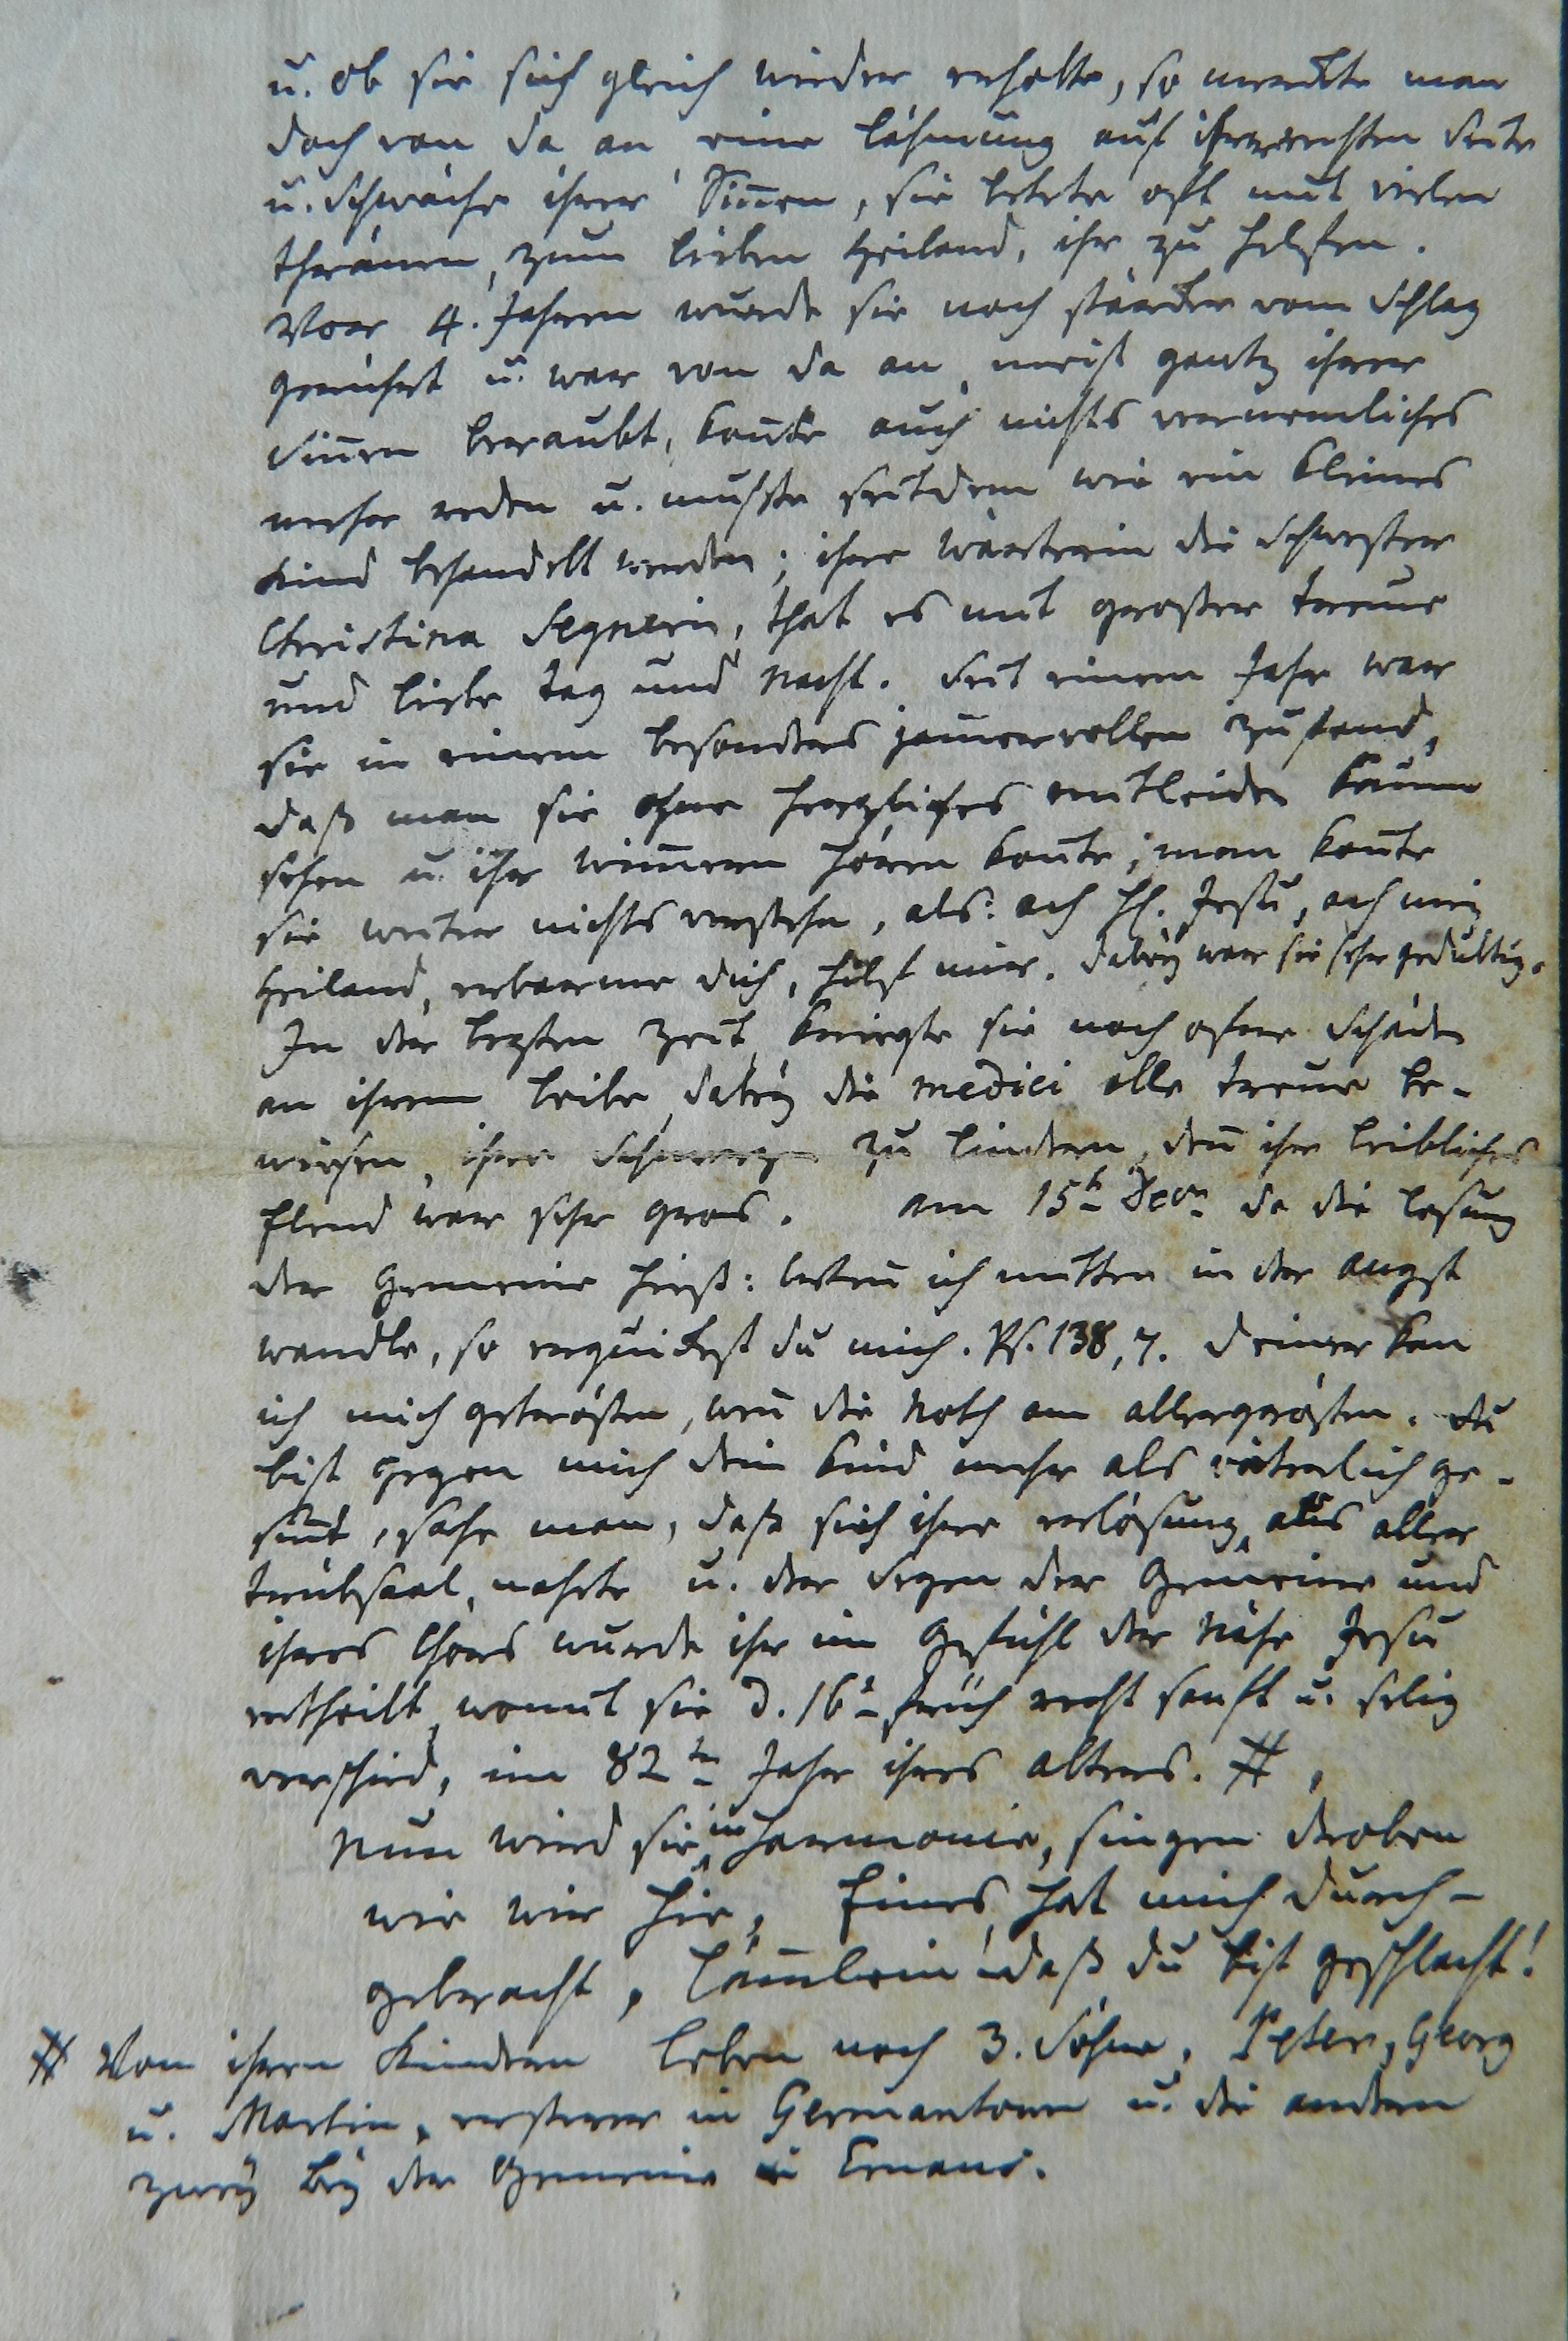 u. ob sie sich gleich wieder erholte, so merckte man
doch von da an eine Lähmung auf ihrer rechten Seite
u. Schwäche ihrer Siñen, sie betete oft mit vielen
Thränen, zum lieben Heiland, ihr zu helfen.
Vor 4. Jahren wurde sie noch stärcker vom Schlag
gerührt u. war von da an, meist gantz ihrer
Siñen beraubt, konte auch nichts vernemliches
mehr reden u. mußte seitdem wie ein kleines
Kind behandelt werden; ihre Wärterin die Schwester
Christina Segnerin, that es mit großer Treue
und Liebe Tag und Nacht. Seit einem Jahr war
sie in einem besonders jam̄ervollen Zustand,
daß man sie ohne herzliches mitleiden kaum
sehen u. ihr wim̄ern hören konte; man konte
sie weiter nichts verstehn, als: ach HE. Jesu, ach mein
Heiland, erbarme dich, hilf mir. Dabey war sie sehr gedultig.
In der lezten Zeit kriegte sie noch ofne Schäden
an ihrem Leibe, dabey die medici alle Treue be-
wiesen, ihre Schmerzen zu lindern, deñ ihr leibliches
Elend war sehr gros. Am 15t Decr da die Losung
der Gemeine hieß: weñ ich mitten in der Angst
wandle, so erquickest du mich. Ps. 138, 7. Deiner kan
ich mich getrösten, weñ die Noth am allergrösten. Du
bist gegen mich dein Kind mehr als väterlich ge-
siñt, sahe man, daß sich ihre erlösung aus aller
Trübsaal, nahete u. der Segen der Gemeine und
ihres Chors wurde ihr im Gefühl der Nähe Jesu
ertheilt, womit sie d. 16t früh recht sanft u. selig
verschied, im 82ten Jahr ihres Alters. #
Nun wird sie in Harmonie, singen droben
wie wir hie, Eines, hat mich durch-
gebracht, Läm̄lein! daß du bist geschlacht!
# Von ihren Kindern leben noch 3. Söhne, Peter, Georg
u. Martin, ersterer in Germantown u. die andern
zwey bey der Gemeine in Emaus.